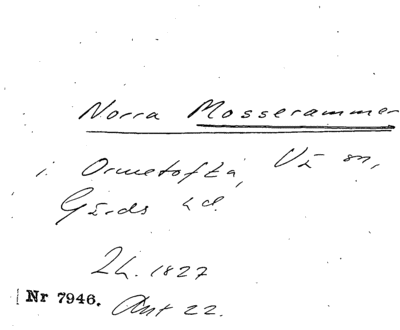 Norra Mosserammen
i Ormetofta, Vä sn,
Gärds hd.
Lh. 1827
Nr 7946. Akt 22.